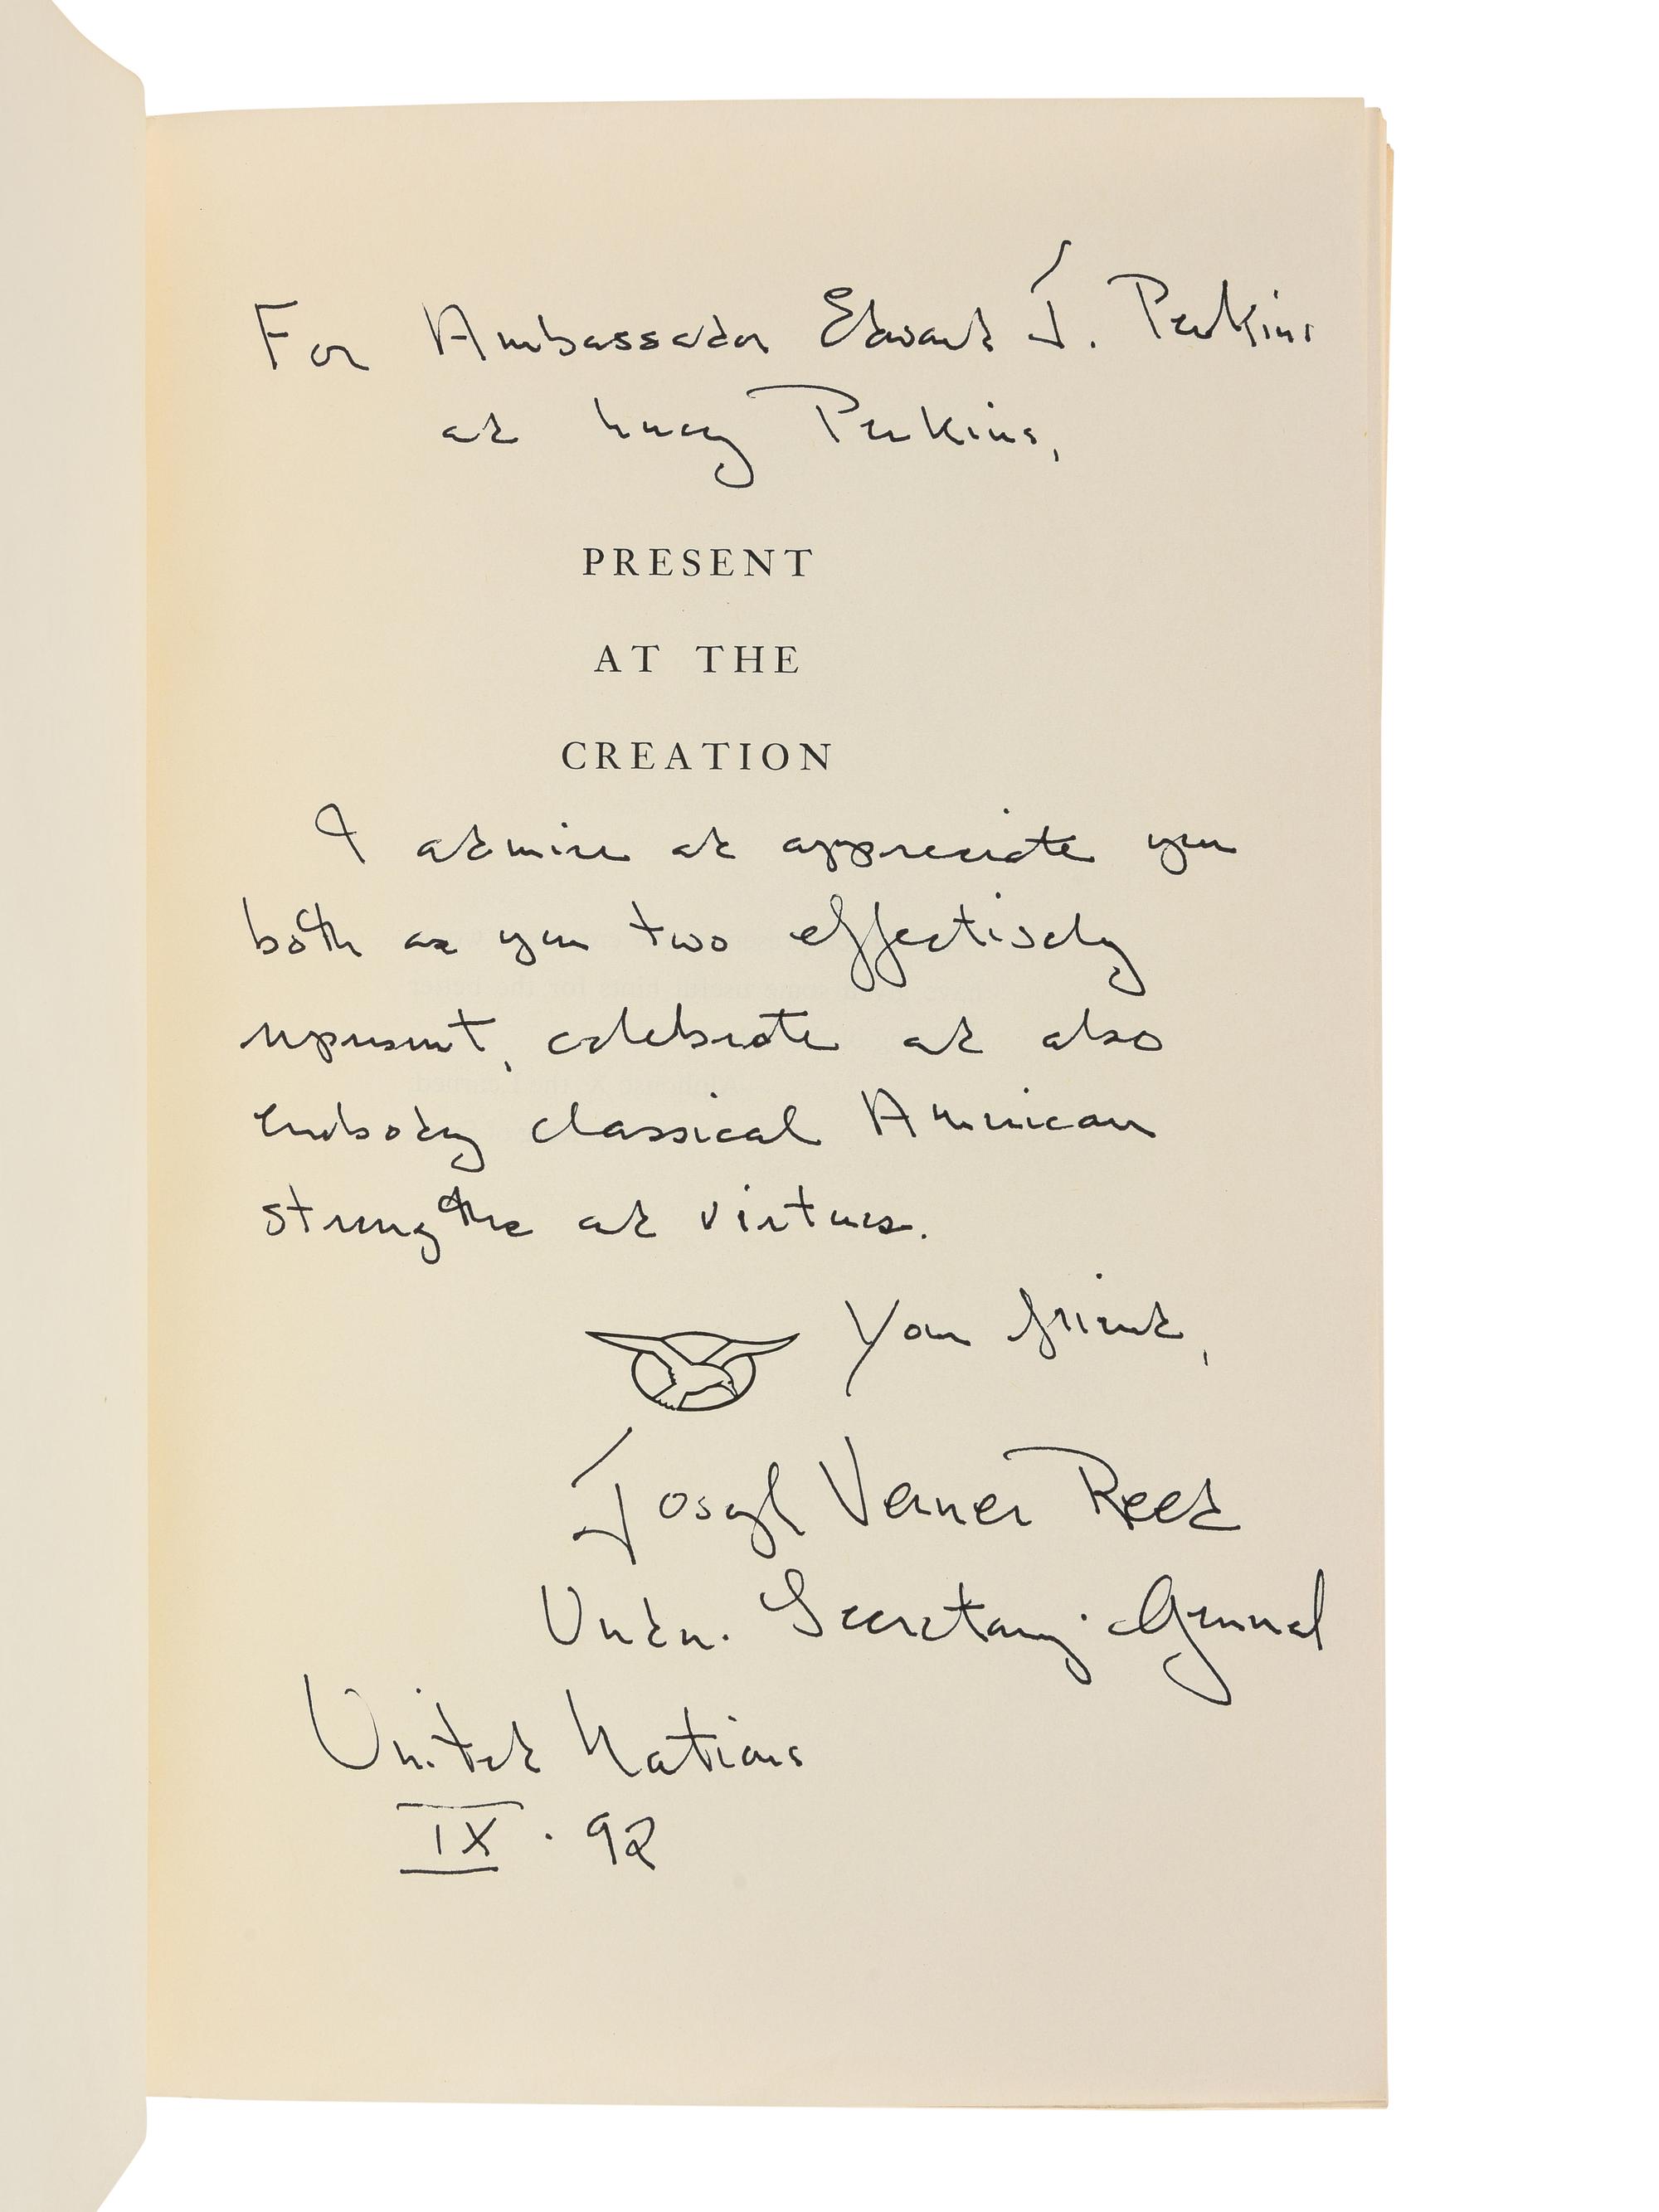 For Ambassador Edward J. Perkins
and Lucy Perkins,
PRESENT
AT THE
CREATION
I admire and appreciate you
both as you two effectively
represent, celebrate and also
embody classical American
strengths and virtues.
Your friend,
Joseph Verner Reed
Under. Secretary. General
United Nations
IX. 92